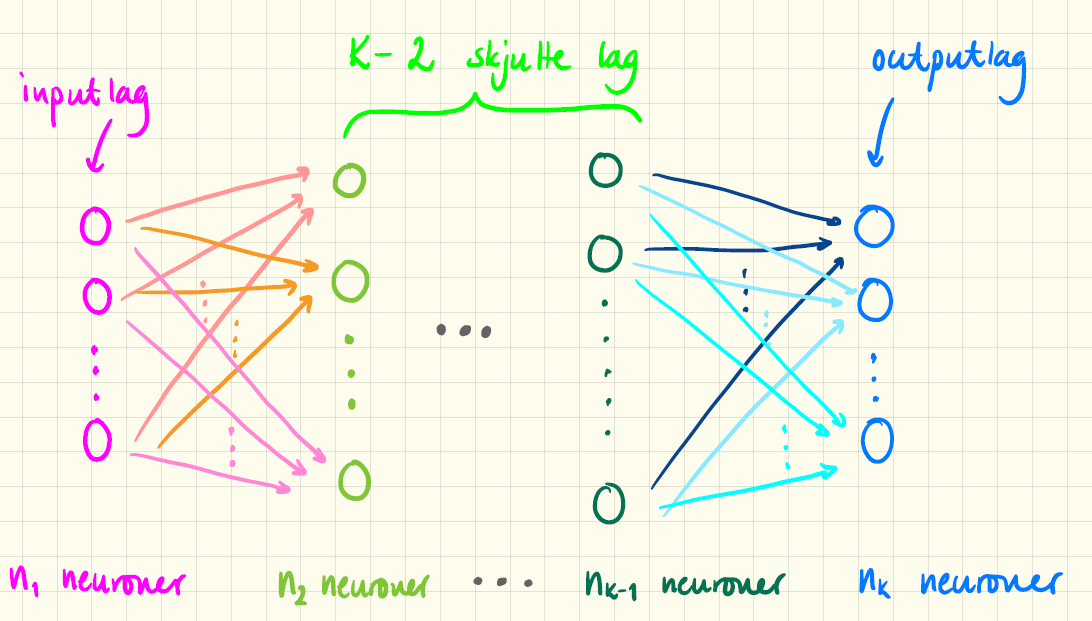 K-2 skjulte lag
outputlag
inputlag
n₁ neuroner
n₂ neuroner
...
nₖ₋₁ neuroner
nₖ neuroner